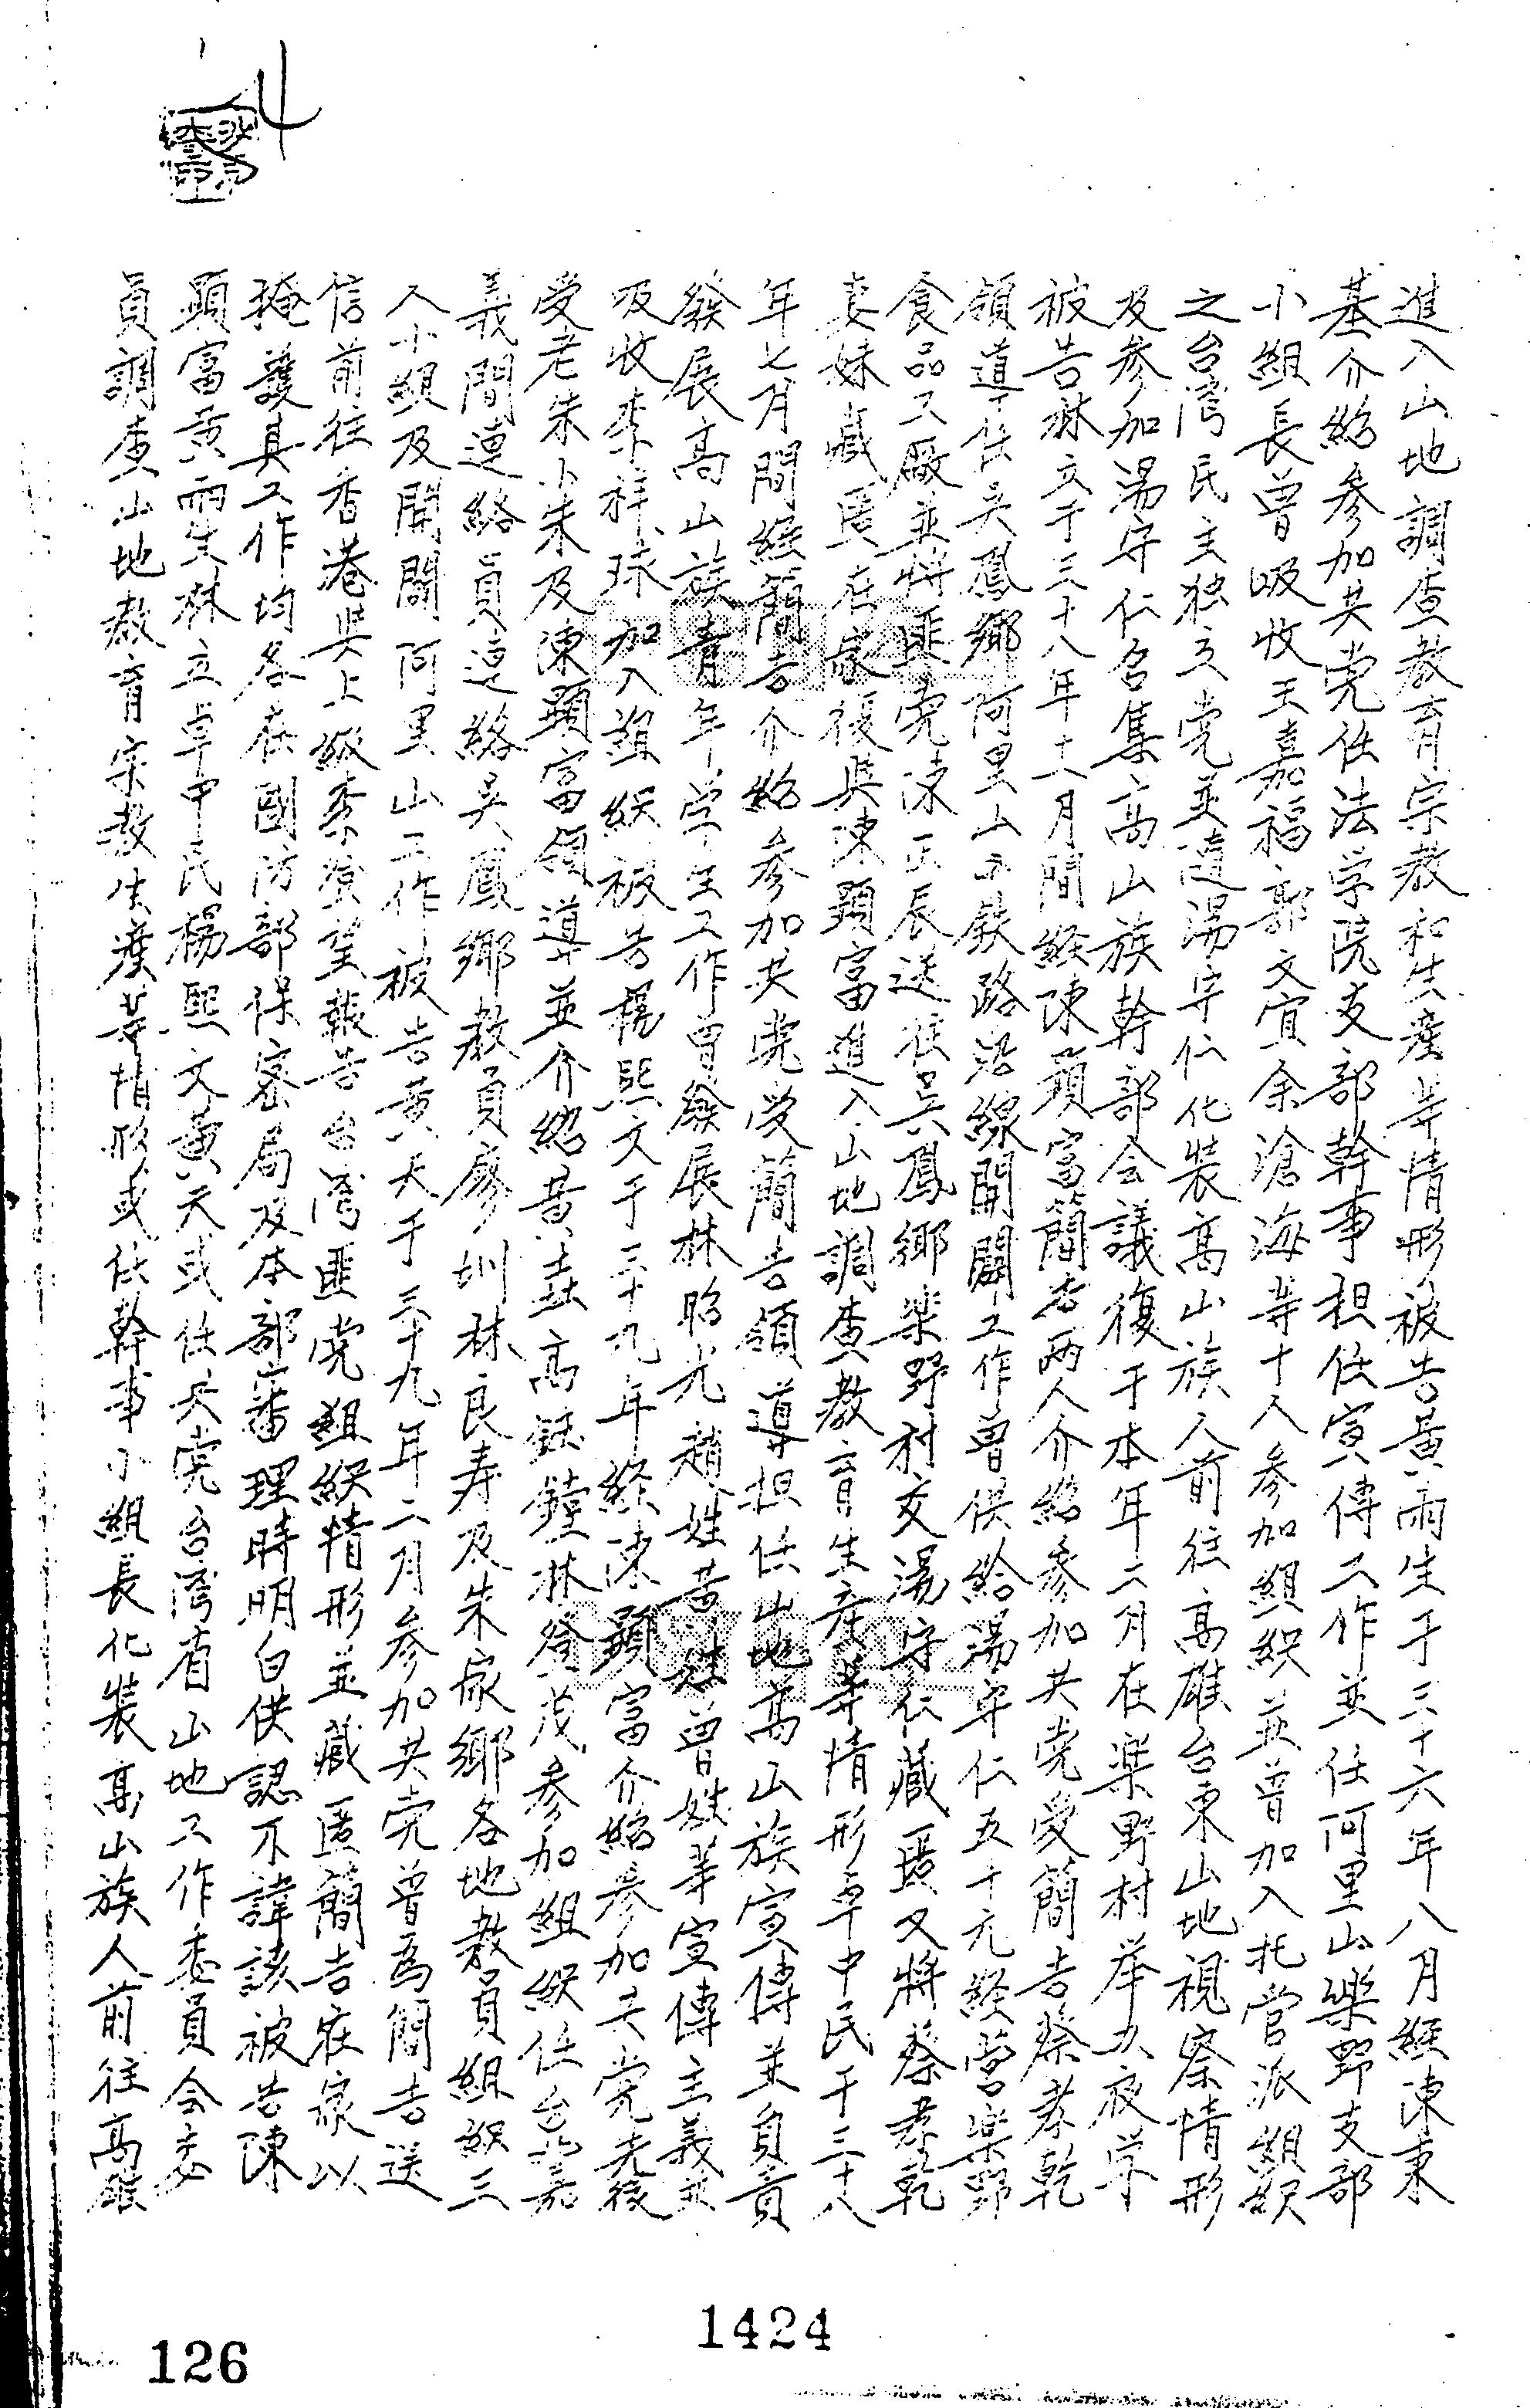 4
進入山地調查教育宗教和生產等情形被告黃雨生于三十六年八月經陳秉
基介紹參加共党任法学院支部幹事担任宣傳工作並任阿里山樂野支部
小組長曾吸收王嘉福郭文宜余滄海等十人參加組織並曾加入托管派組織
之台湾民主独立党並隨湯守仁化裝高山族人前往高雄台東山地視察情形
及參加湯守仁召集高山族幹部会議復于本年二月在楽野村举办夜学
被告林立于三十八年十一月間經陳顯富簡吉兩人介紹參加共党受簡吉蔡孝乾
領導任吳鳳鄉阿里山鉄路沿線開闢工作曾供給湯守仁五十元經营楽野
食品工廠並將匪党陳正辰送往吳鳳鄉楽野村交湯守仁藏匿又將蔡孝乾
妻妹藏匿在家後與陳顯富進入山地調查教育生產等情形卓中民于三十八
年七月間經簡吉介紹參加共党受簡吉領導担任山地高山族宣傳並負責
發展高山族青年学生工作曾發展林昭光趙姓黃姓曾姓等宣傳主義並
吸收李祥球加入組織被告楊熙文于三十九年經陳顯富介紹參加共党先後
受老朱小朱及陳顯富領導並介紹黃垚高鈺鐘林登茂參加組織任台北嘉
義間連絡員連絡吳鳳鄉教員廖圳林良寿及朱家鄉各地教員組織三
人小組及開闢阿里山工作被告黃天于三十九年二月參加共党曾為簡吉送
信前往香港與上級李濱望報告台湾匪党組織情形並藏匿簡吉在家以
掩護其工作均各在國防部保密局及本部審理時明白供認不諱該被告陳
顯富黃雨生林立卓中民楊熙文黃天或任共党台湾省山地工作委員会委
員調查山地教育宗教生產等情形或任幹事小組長化裝高山族人前往高雄
1424
126